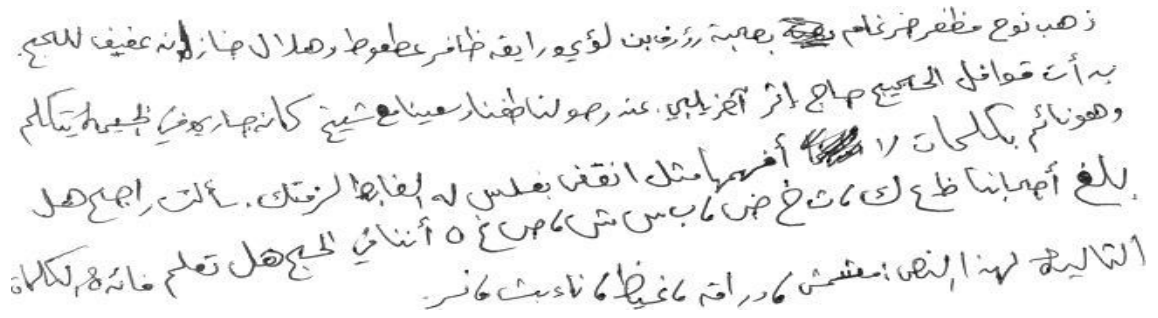 ذهب نوح مظفر ضرغام بصحبة رؤوف بن لؤي ورايقه ظافر عطعوط وهلال خازنه عفيف للحج.
بدأت قوافل الحجيج حاج إثر آخر يلبي. عند وصولنا طفنا وسعينا مع شيخ كان جاري في الخيمة يتكلم
وهو نائم بكلمات لا أفهمها مثل انقض بغلس له الفاظ لزمتك. سألت راجح هل
بلغ أصحابنا ظ ع ك ث خ ض ب س ش ص غ ه أننا في الحج هل تعلم فائدة الكلمات
التالية لهذا النص: مشمش، دراق، غيظ، ناء بث، نسر.